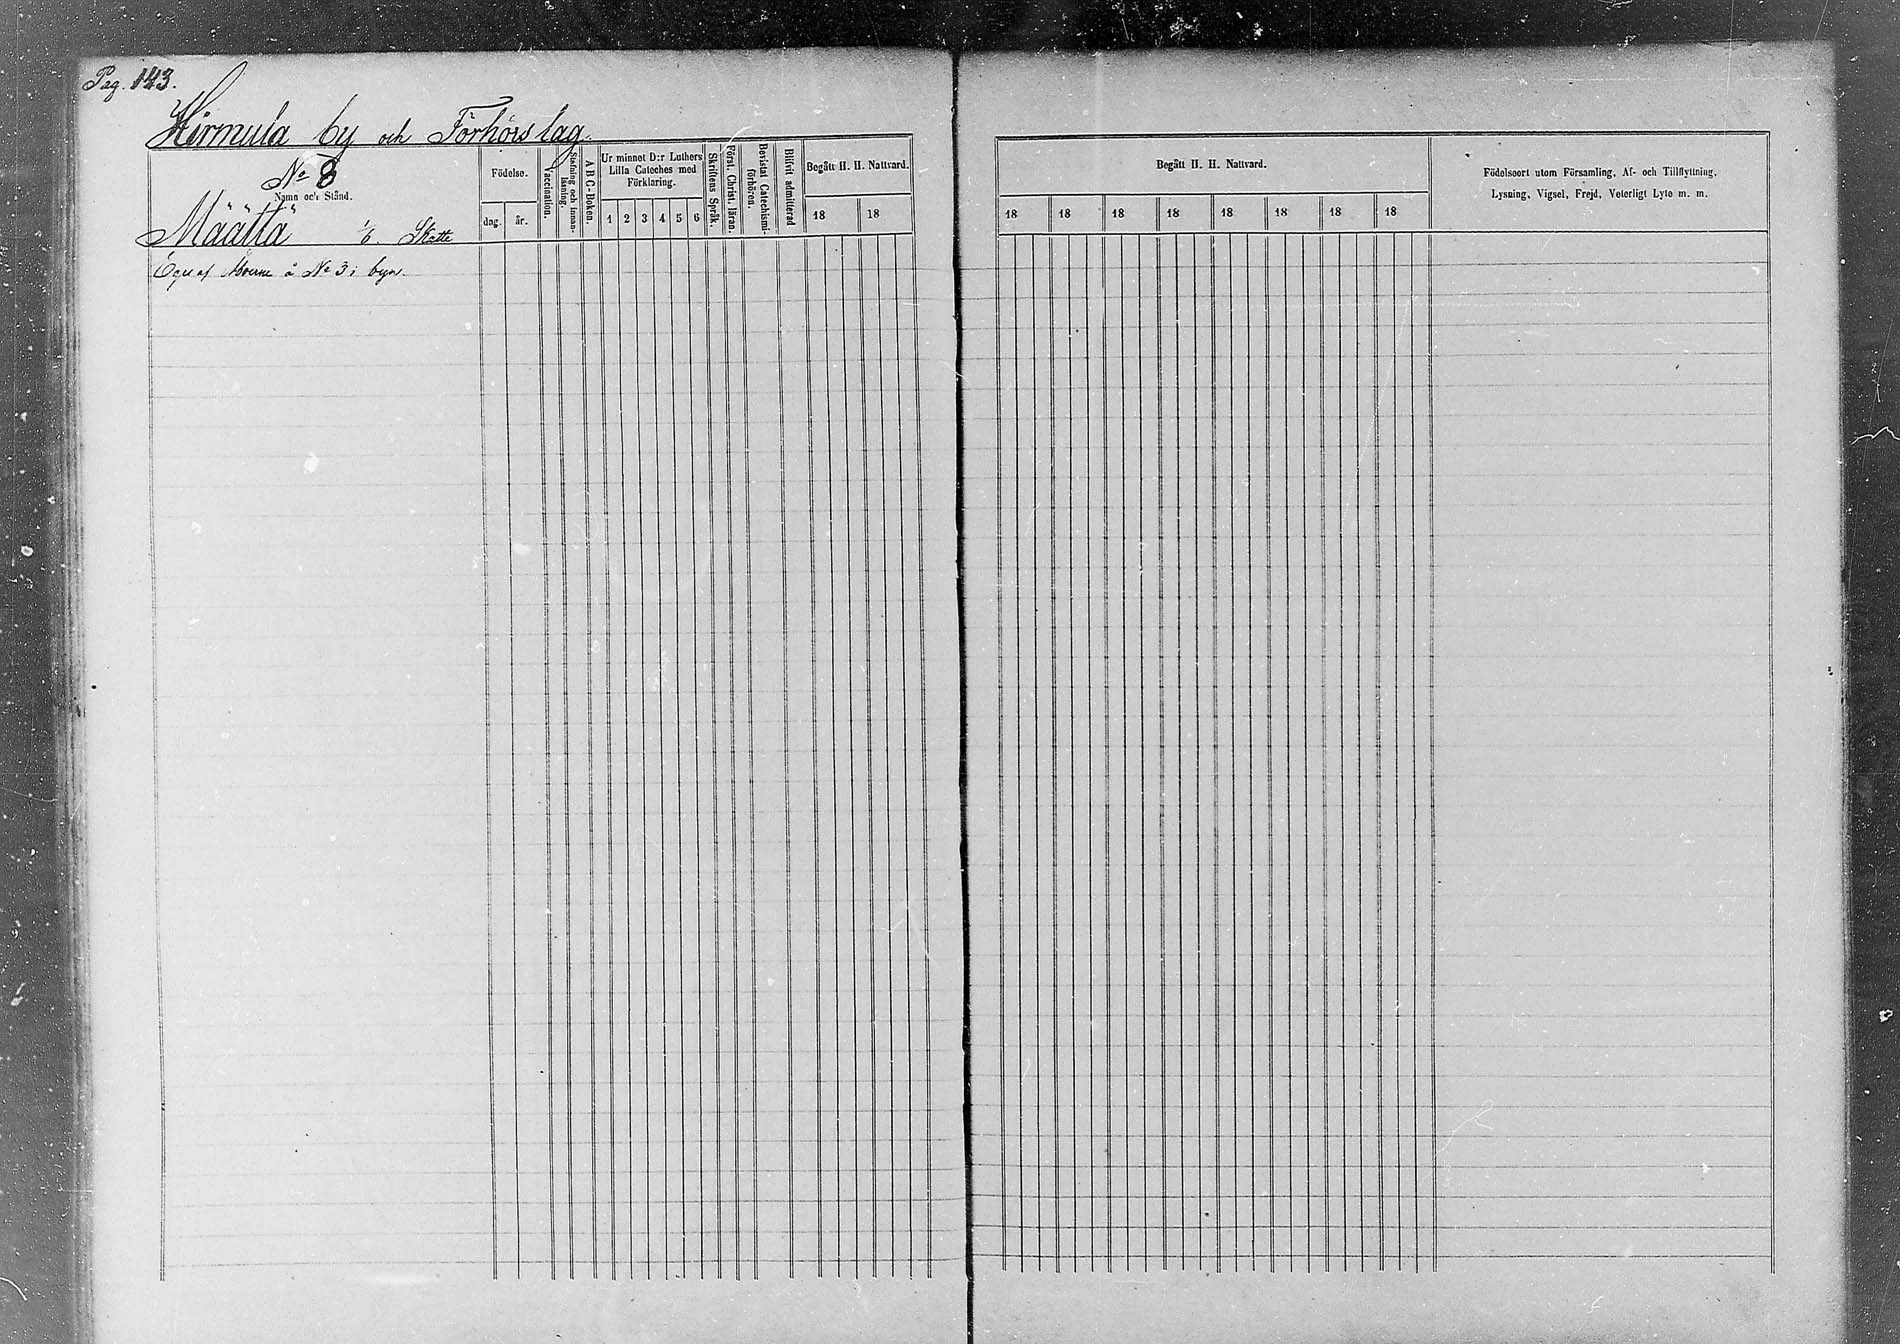 Pag. 143.
Hirmula by och Förhörslag.
No 8
Namn och Stånd.
Määttä 1/6. Skatte
Eges af No 3 i byn.
Födelse.
dag. år.
Vaccination.
Stafning och innan-
läsning.
A B C-Boken.
Ur minnet D:r Luthers
Lilla Cateches med
Förklaring.
1 2 3 4 5 6
Skriftens Språk.
Först. Christ. läran.
Bevistat Catechismi-
förhören.
Blifvit admitterad
Begått H. H. Nattvard.
18 18
Begått H. H. Nattvard.
18 18 18 18 18 18 18 18
Födelseort utom Församling, Af- och Tillflyttning,
Lysning, Vigsel, Frejd, Veterligt Lyte m. m.